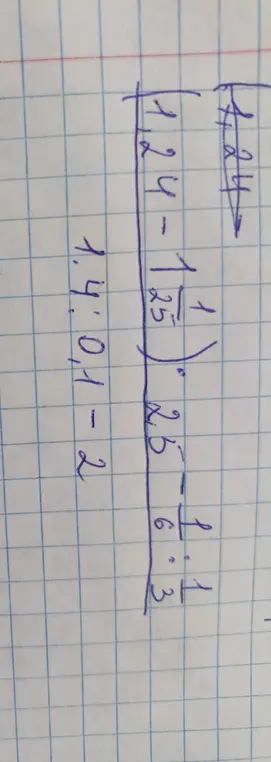 (1,24
(1,24 − 1 1/25) · 2,5 − 1/6 : 1/3
1,4 : 0,1 − 2